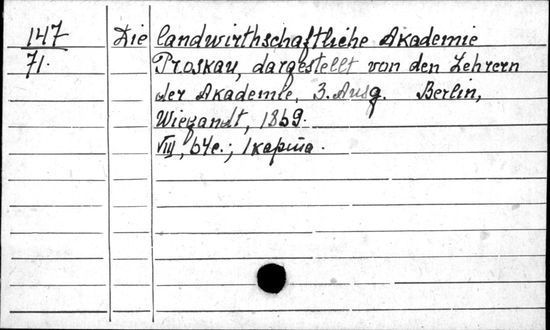 147 Die landwirthschaftliche Akademie
71. Proskau, dargestellt von den Lehrern
der Akademie. 3. Ausg. Berlin,
Wiegandt, 1869.
VIII, 64 с.; 1 карта.